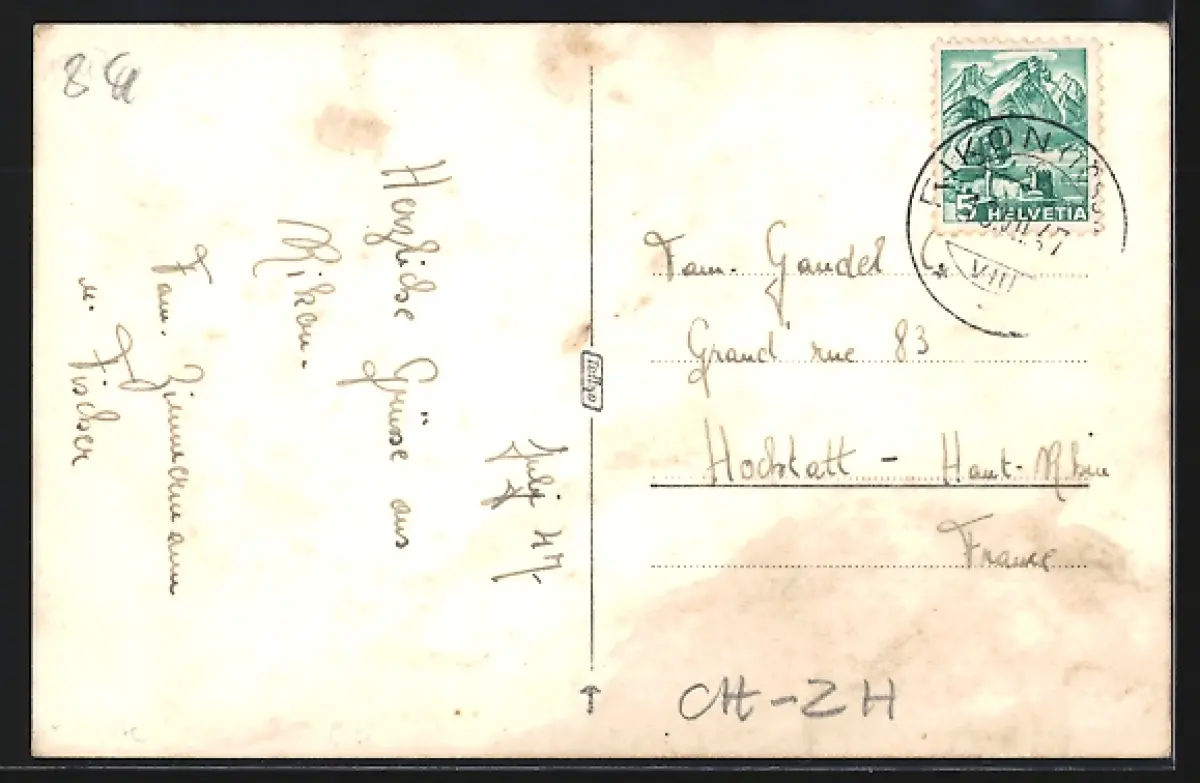 Juli 47.
Herzliche Grüsse aus
Rikon.
Fam. Zimmermann
u. Fischer
5 HELVETIA
VIII
Fam. Gandel
Grand rue 83
Hochstatt - Haut-Rhin
France
CH-ZH